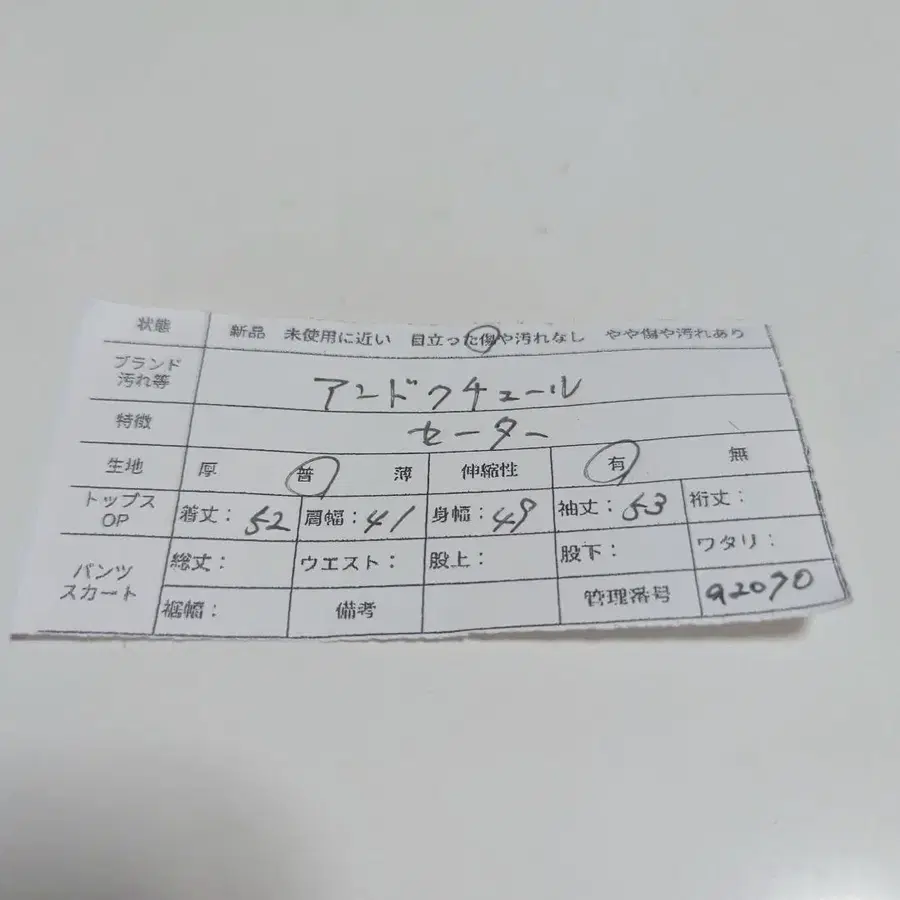 状態 新品 未使用に近い 目立った傷や汚れなし やや傷や汚れあり
ブランド 汚れ等 アンドクチュール
特徴 セーター
生地 厚 普 薄 伸縮性 有 無
トップス OP 着丈：52 肩幅：41 身幅：49 袖丈：53 裄丈：
パンツ スカート 総丈： ウエスト： 股上： 股下： ワタリ：
裾幅： 備考 管理番号 a2070